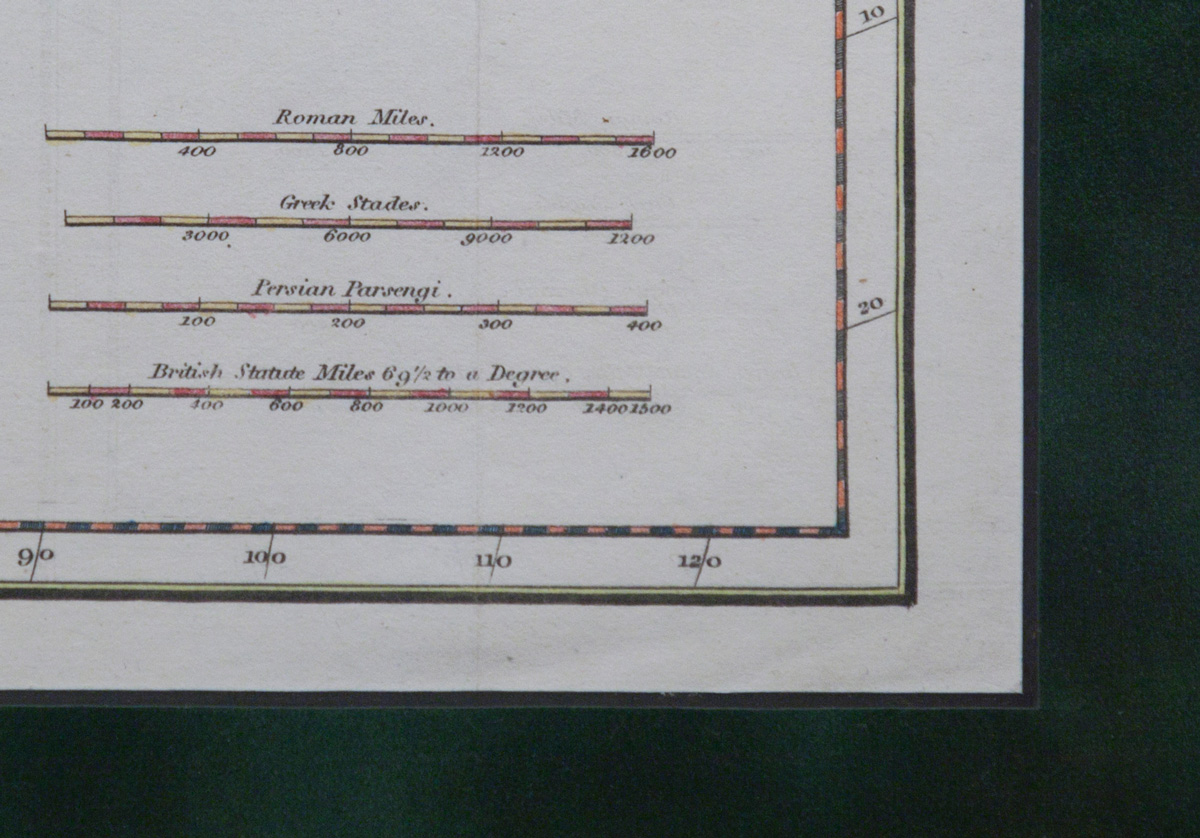 10
Roman Miles.
400 800 1200 1600
Greek Stades.
3000 6000 9000 1200
Persian Parsengi.
100 200 300 400
20
British Statute Miles 69½ to a Degree,
100 200 400 600 800 1000 1200 1400 1500
90 100 110 120